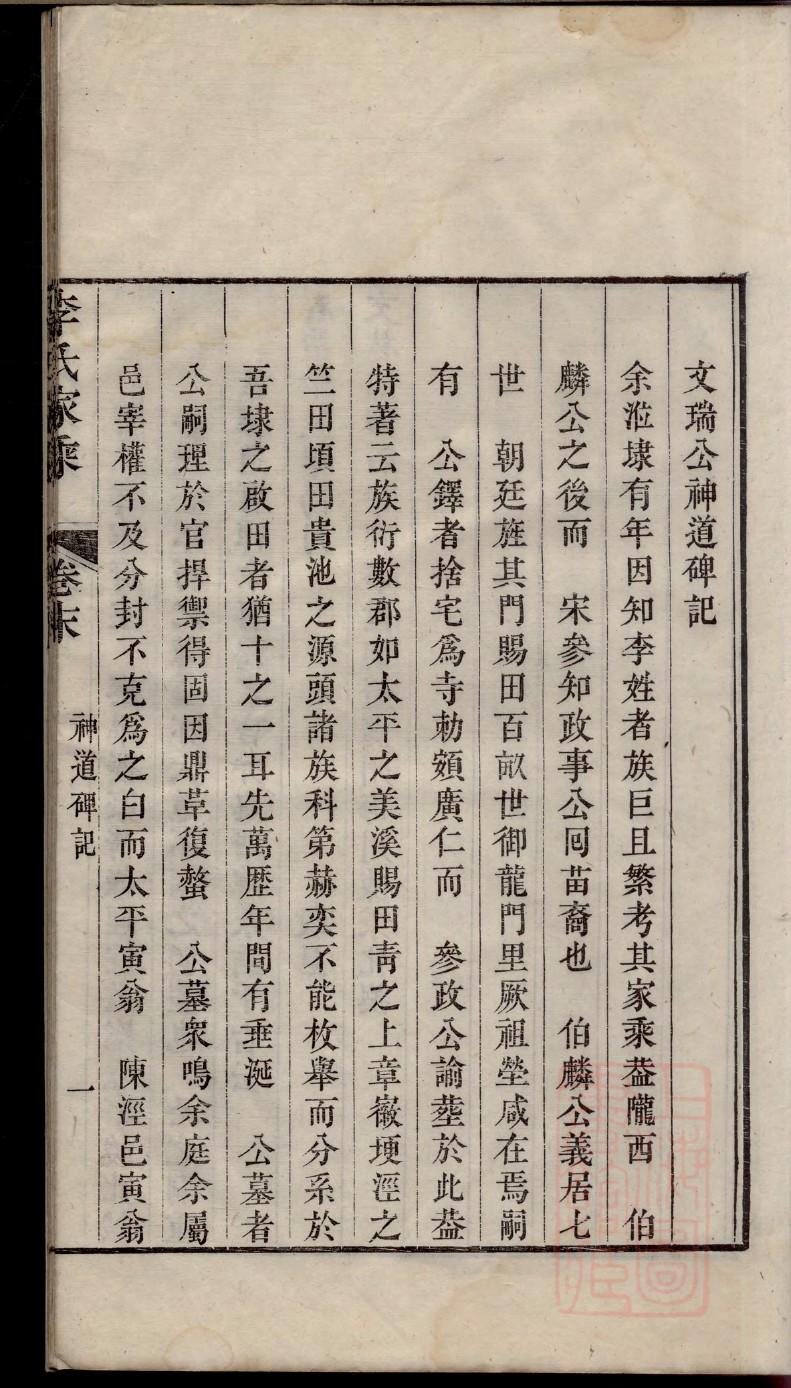 文瑞公神道碑記
余涖埭有年因知李姓者族巨且繁考其家乘葢隴西　伯
麟公之後而　宋參知政事公囘苗裔也　伯麟公義居七
世　朝廷旌其門賜田百畝世御龍門里厥祖塋咸在焉嗣
有　公鐸者捨宅爲寺勅額廣仁而　參政公諭塟於此葢
特著云族衍數郡如太平之美溪賜田靑之上章嶶埂涇之
竺田項田貴池之源頭諸族科第赫奕不能枚舉而分系於
吾埭之啟田者猶十之一耳先萬歷年間有垂涎　公墓者
公嗣理於官捍禦得固因鼎草復螫　公墓衆鳴余庭余屬
邑宰權不及分封不克爲之白而太平寅翁　陳涇邑寅翁
李氏家乘　卷末　神道碑記　一